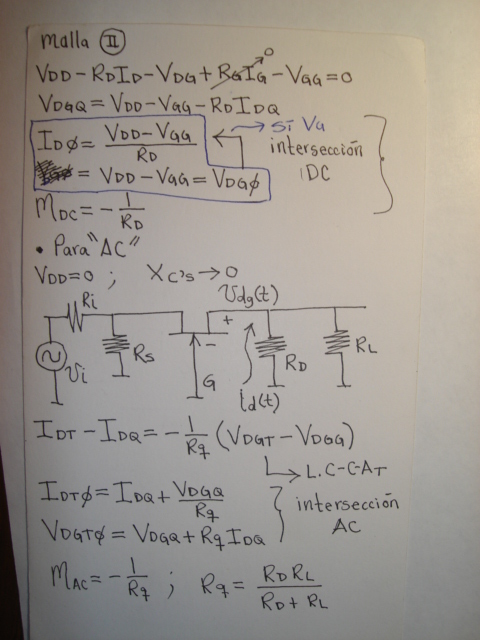 Malla II
VDD-RDID-VDG+RGIG-VGG=0
0
VDGQ=VDD-VGG-RDIDQ
IDø=VDD-VGG/RD
→ si va
=VDD-VGG=VDGø
intersección
DC
MDC=-1/RD
• Para "AC"
VDD=0 ; XC's→0
Ri
Vdg(t)
+
-
RS
RD
RL
Vi
G
id(t)
IDT-IDQ=-1/Rq(VDGT-VDGQ)
L.C-C.AT
IDTø=IDQ+VDGQ/Rq
VDGTø=VDGQ+RqIDQ
intersección
AC
MAC=-1/Rq ; Rq=RDRL/RD+RL